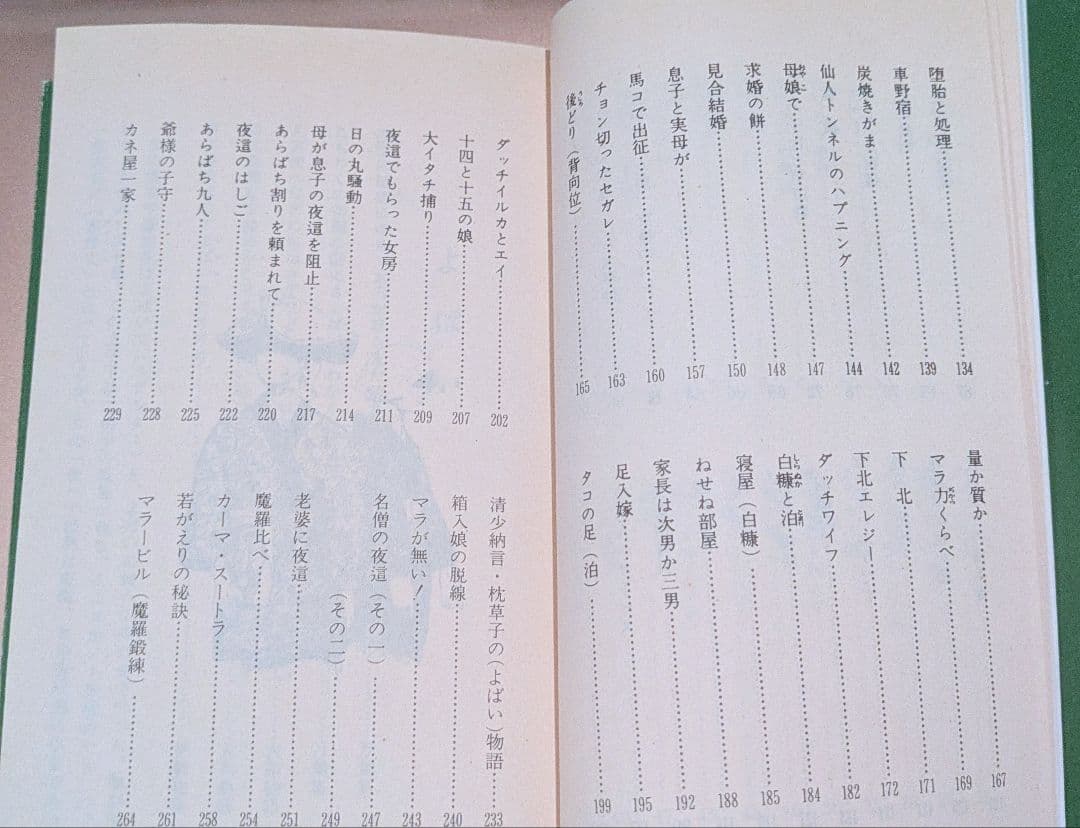 堕胎と処理……134
車野宿……139
炭焼きがま……142
仙人トンネルのハプニング……144
母娘で……147
求婚の餅……148
見合結婚……150
息子と実母が……157
馬コで出征……160
チョン切ったセガレ……163
後どり（背向位）……165
量か質か……167
マラ力くらべ……169
下北……171
下北エレジー……172
ダッチワイフ……182
白糠と泊……184
寝屋（白糠）……185
ねせね部屋……188
家長は次男か三男……192
足入嫁……195
タコの足（泊）……199
ダッチイルカとエイ……202
十四と十五の娘……207
大イタチ捕り……209
夜這でもらった女房……211
日の丸騒動……214
母が息子の夜這を阻止……217
あらばち割りを頼まれて……220
夜這のはしご……222
あらばち九人……225
爺様の子守……228
カネ屋一家……229
清少納言・枕草子の（よばい）物語……233
箱入娘の脱線……240
マラが無い！……243
名僧の夜這（その一）……247
（その二）……249
老婆に夜這……251
魔羅比べ……254
カーマ・スートラ……258
若がえりの秘訣……261
マラービル（魔羅鍛練）……264